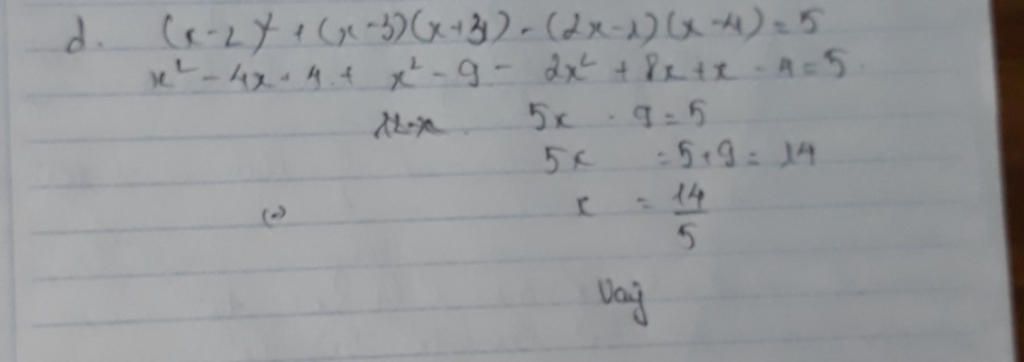 d. (x-2)² + (x-3)(x+3) - (2x-1)(x-4) = 5
x² - 4x + 4 + x² - 9 - 2x² + 8x + x - 4 = 5
5x - 9 = 5
5x = 5 + 9 = 14
x = 14/5
Vaỵ